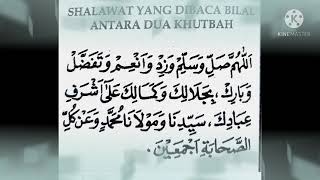 SHALAWAT YANG DIBACA BILAL
ANTARA DUA KHUTBAH
KINEMASTER
اَللّٰهُمَّ صَلِّ وَسَلِّمْ وَزِدْ وَاَنْعِمْ وَتَفَضَّلْ
وَبَارِكْ، بِجَلَالِكَ وَكَمَالِكَ عَلَى اَشْرَفِ
عِبَادِكَ، سَيِّدِنَا وَمَوْلَانَا مُحَمَّدٍ وَعَنْ كُلِّ
الصَّحَابَةِ اَجْمَعِيْنَ.